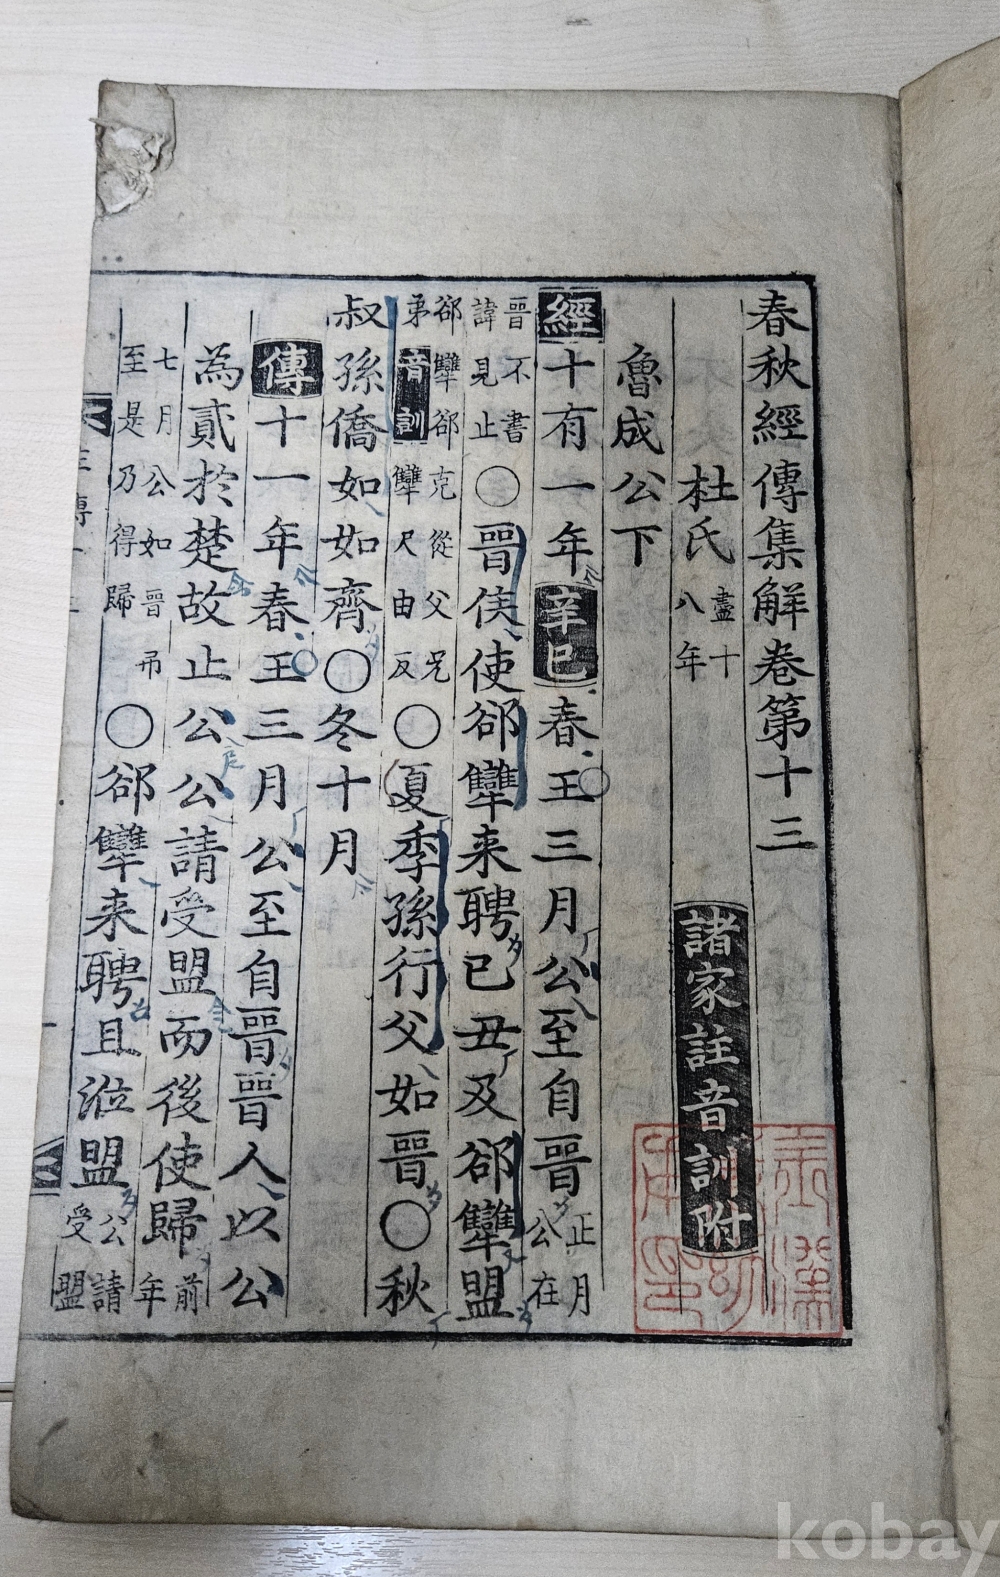 春秋經傳集解卷第十三
杜氏 盡十八年 諸家註音訓附
魯成公下
經十有一年辛巳春王三月公至自晉 正月公在
晉不書諱見止 ○晉侯使郤犫来聘已丑及郤犫盟
郤犫郤克從父兄弟 音訓 犫尺由反 ○夏季孫行父如晉○秋
叔孫僑如如齊○冬十月
傳十一年春王三月公至自晉晉人以公
為貳於楚故止公公請受盟而後使歸 前年
七月公如晉至是乃得歸 ○郤犫来聘且涖盟 公請受盟
kobay